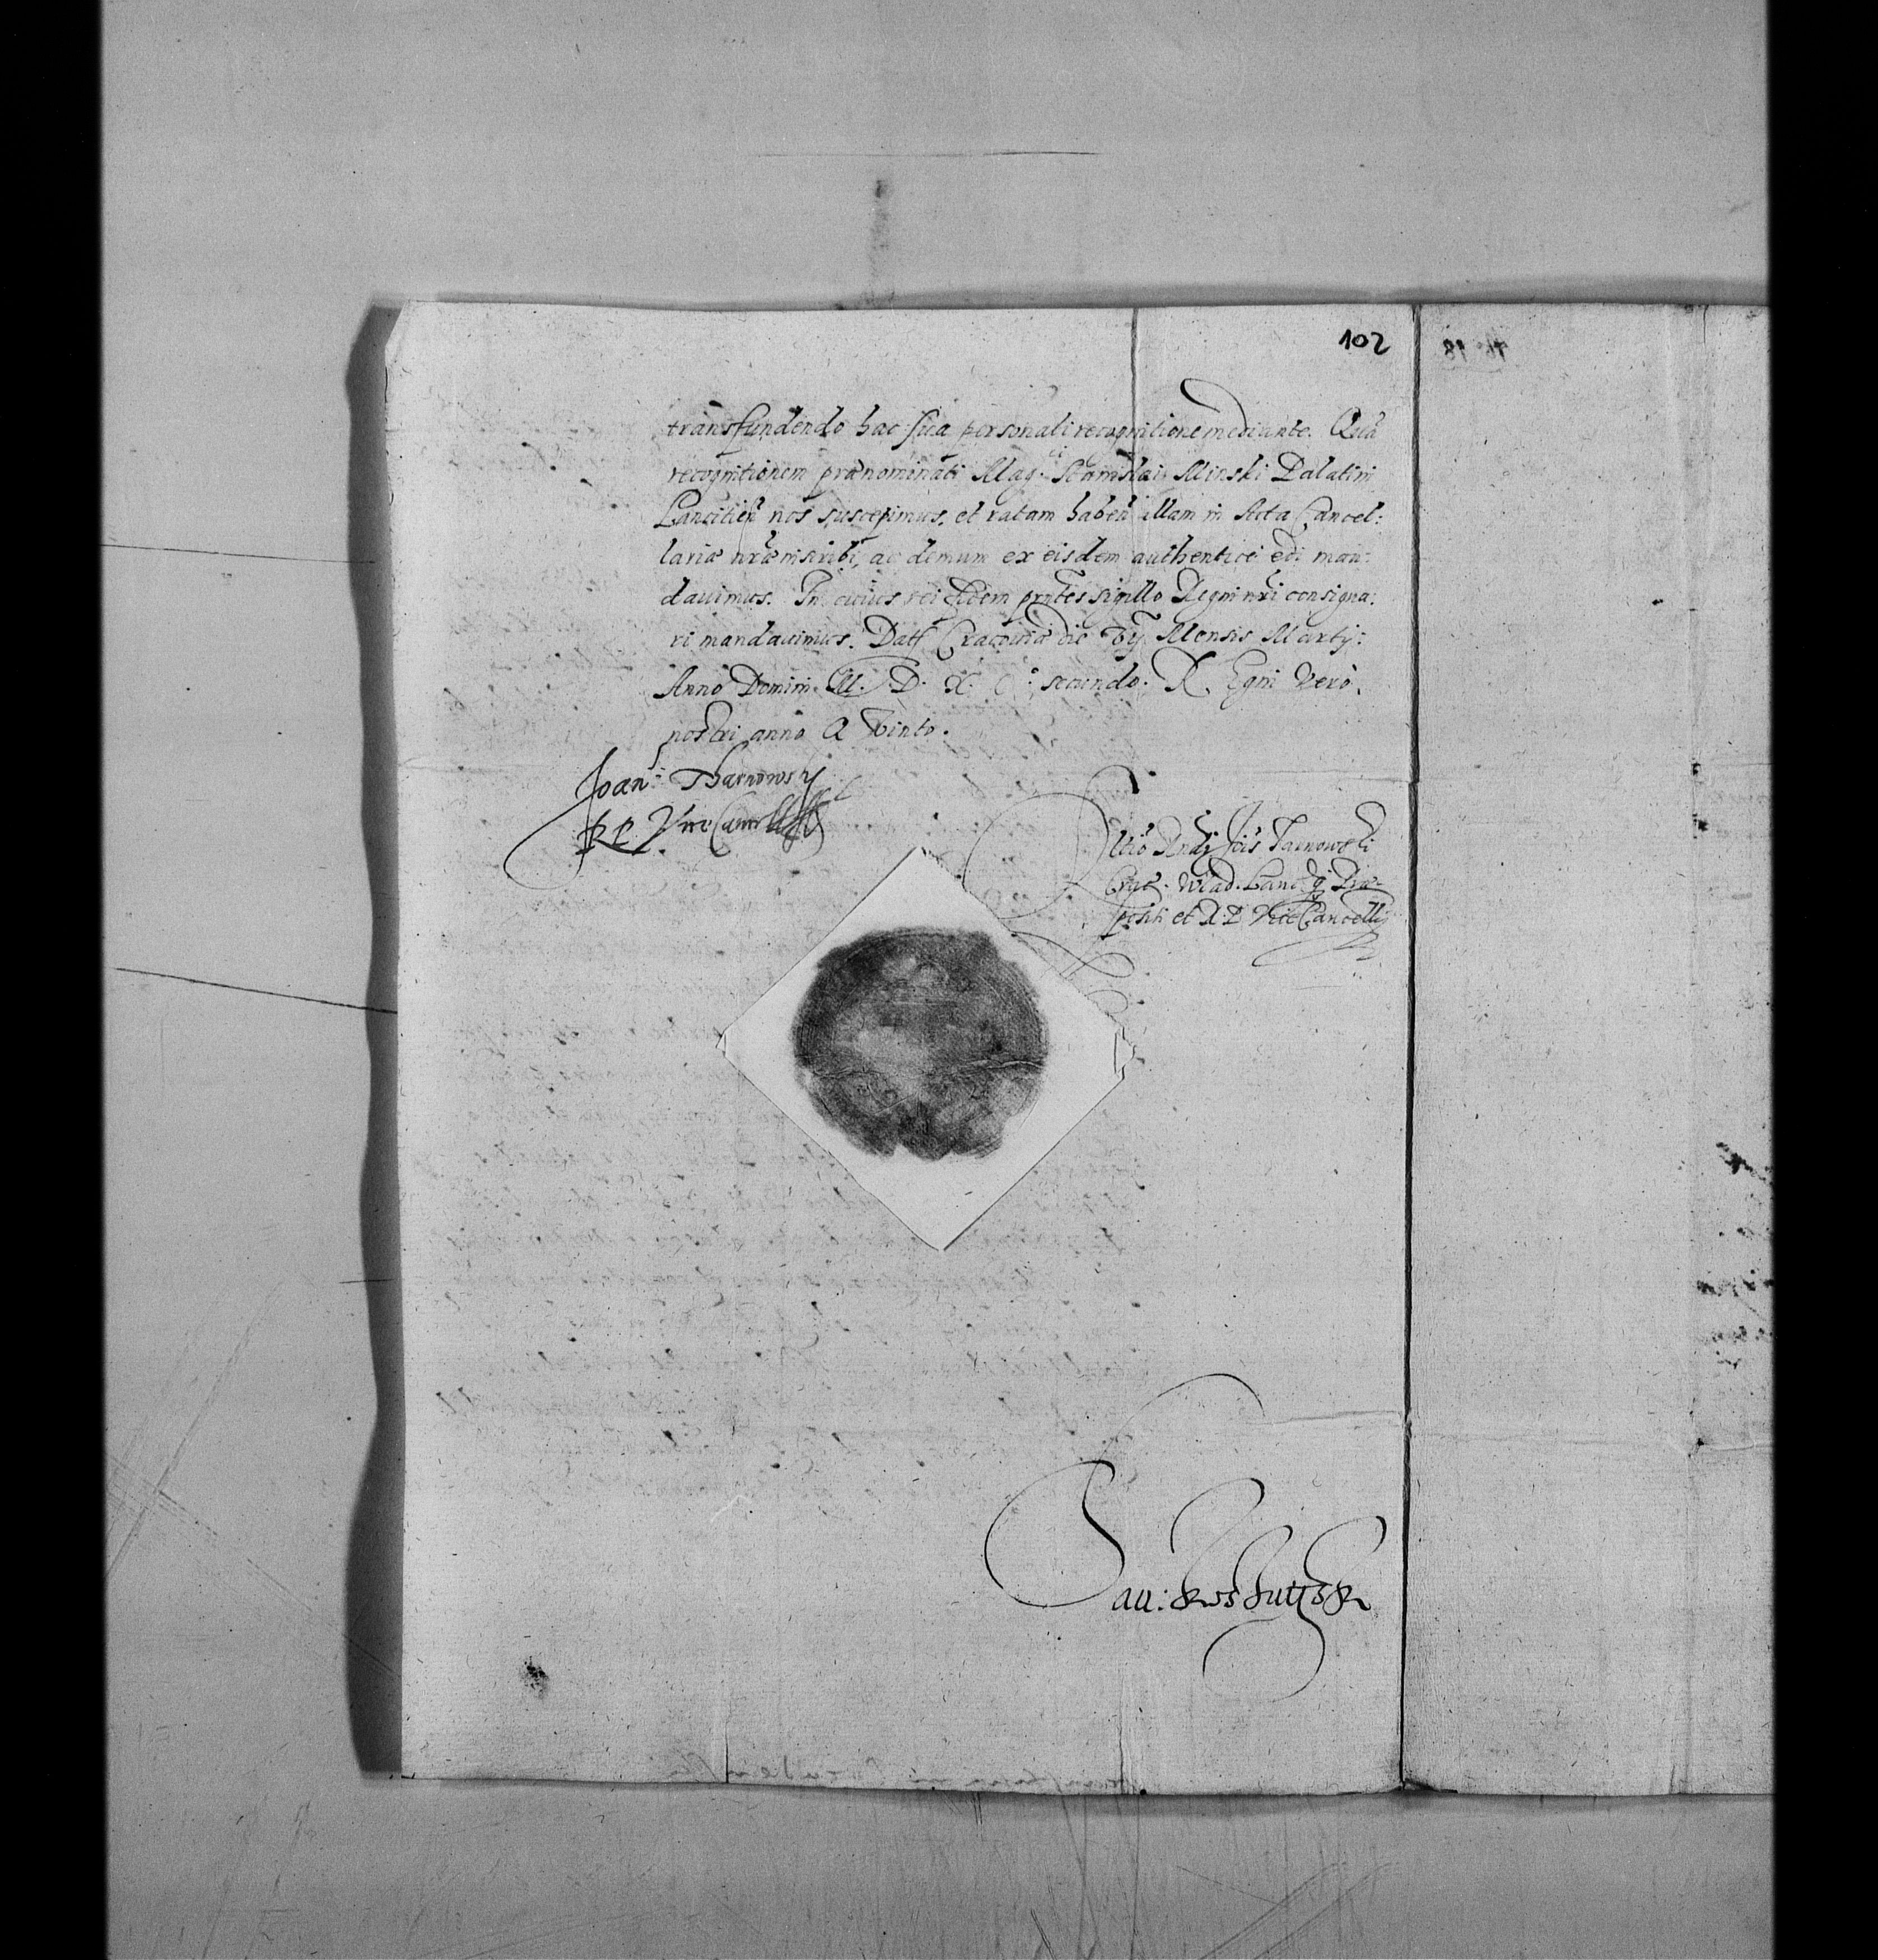 102
transfundendo hac sua personali recognitione mediante. Quã
recognitionem prænominati Mag:ci Stanislai Minski Palatini
Lancitień nos suscepimus, et ratam habeń illam in Acta Cancel:
lariæ nræ inscribi, ac demum ex eisdem authentice edi man:
dauimus. In cuius rei fidem pntes sigillo Regni nri consigna:
ri mandauimus. Datt Cracouiæ die Vij Mensis Martij:
Anno Domini M. D. X C° secundo. R Egni vero
nostri anno Q Vinto.
Joan: Tharnowsky
R P. Vice Cancell
Rltio Rndi Jois Tarnowski
Crac. Wlad. Lanc. q Præ-
positi et R P Vice Cancellij